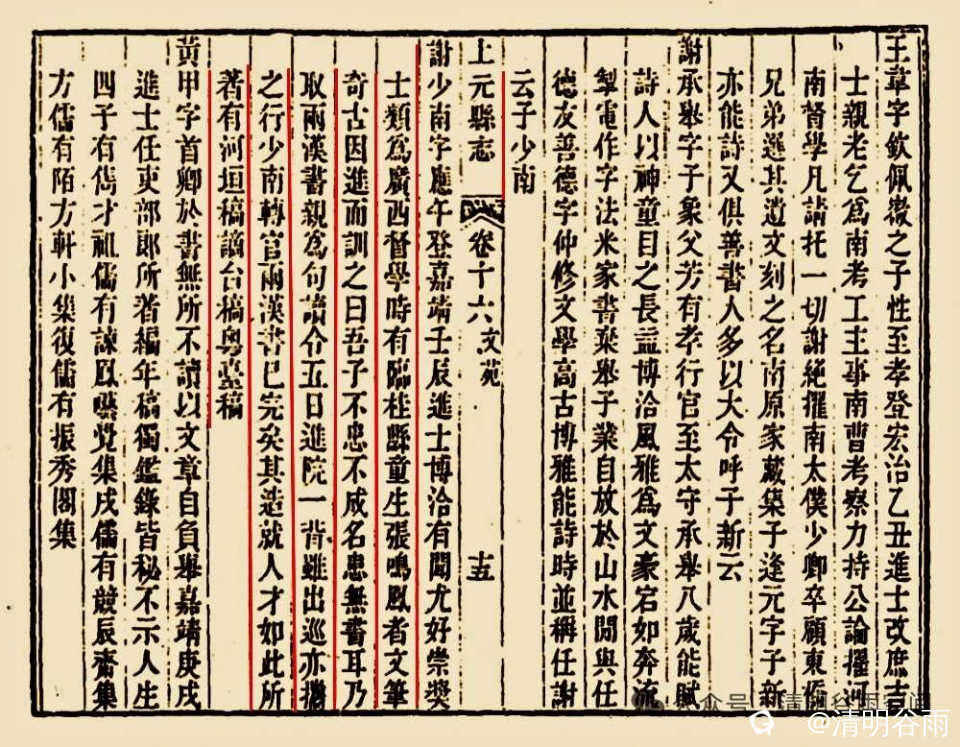 王韋字欽佩徽之子性至孝登宏治乙丑進士改庶吉
士親老乞爲南考工主事南曹考察力持公論擢河
南督學凡請托一切謝絶擢南太僕少卿卒顧東橋
兄弟選其遺文刻之名南原家藏集子逢元字子新
亦能詩又俱善書人多以大令呼子新云
謝承舉字子象父芳有孝行官至太守承舉八歲能賦
詩人以神童目之長益博洽風雅爲文豪宕如奔流
掣電作字法米家書棄舉子業自放於山水間與任
德友善德字仲修文學高古博雅能詩時並稱任謝
云子少南
上元縣志 卷十六 文苑 十五
謝少南字應午登嘉靖壬辰進士博洽有聞尤好崇獎
士類爲廣西督學時有臨桂縣童生張鳴鳳者文筆
奇古因進而訓之曰吾子不忠不成名患無書耳乃
取兩漢書親爲句讀令五日進院一背雖出巡亦攜
之行少南轉官兩漢書已完矣其造就人才如此所
著有河垣稿謫台稿粵臺稿
黃甲字首卿於書無所不讀以文章自負舉嘉靖庚戌
進士任吏部郎所著編年稿獨鑑錄皆秘不示人生
四子有雋才祖儒有諫鳳囈覺集戌儒有競辰齋集
方儒有陌方軒小集復儒有振秀閣集
公众号·清明谷雨
@清明谷雨